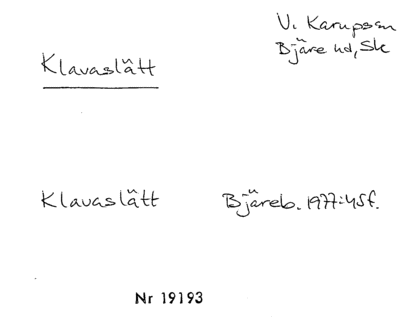 V. Karupssn
Bjäre hd, Sk
Klavaslätt
Klavaslätt Bjäreb. 1977:45f.
Nr 19193